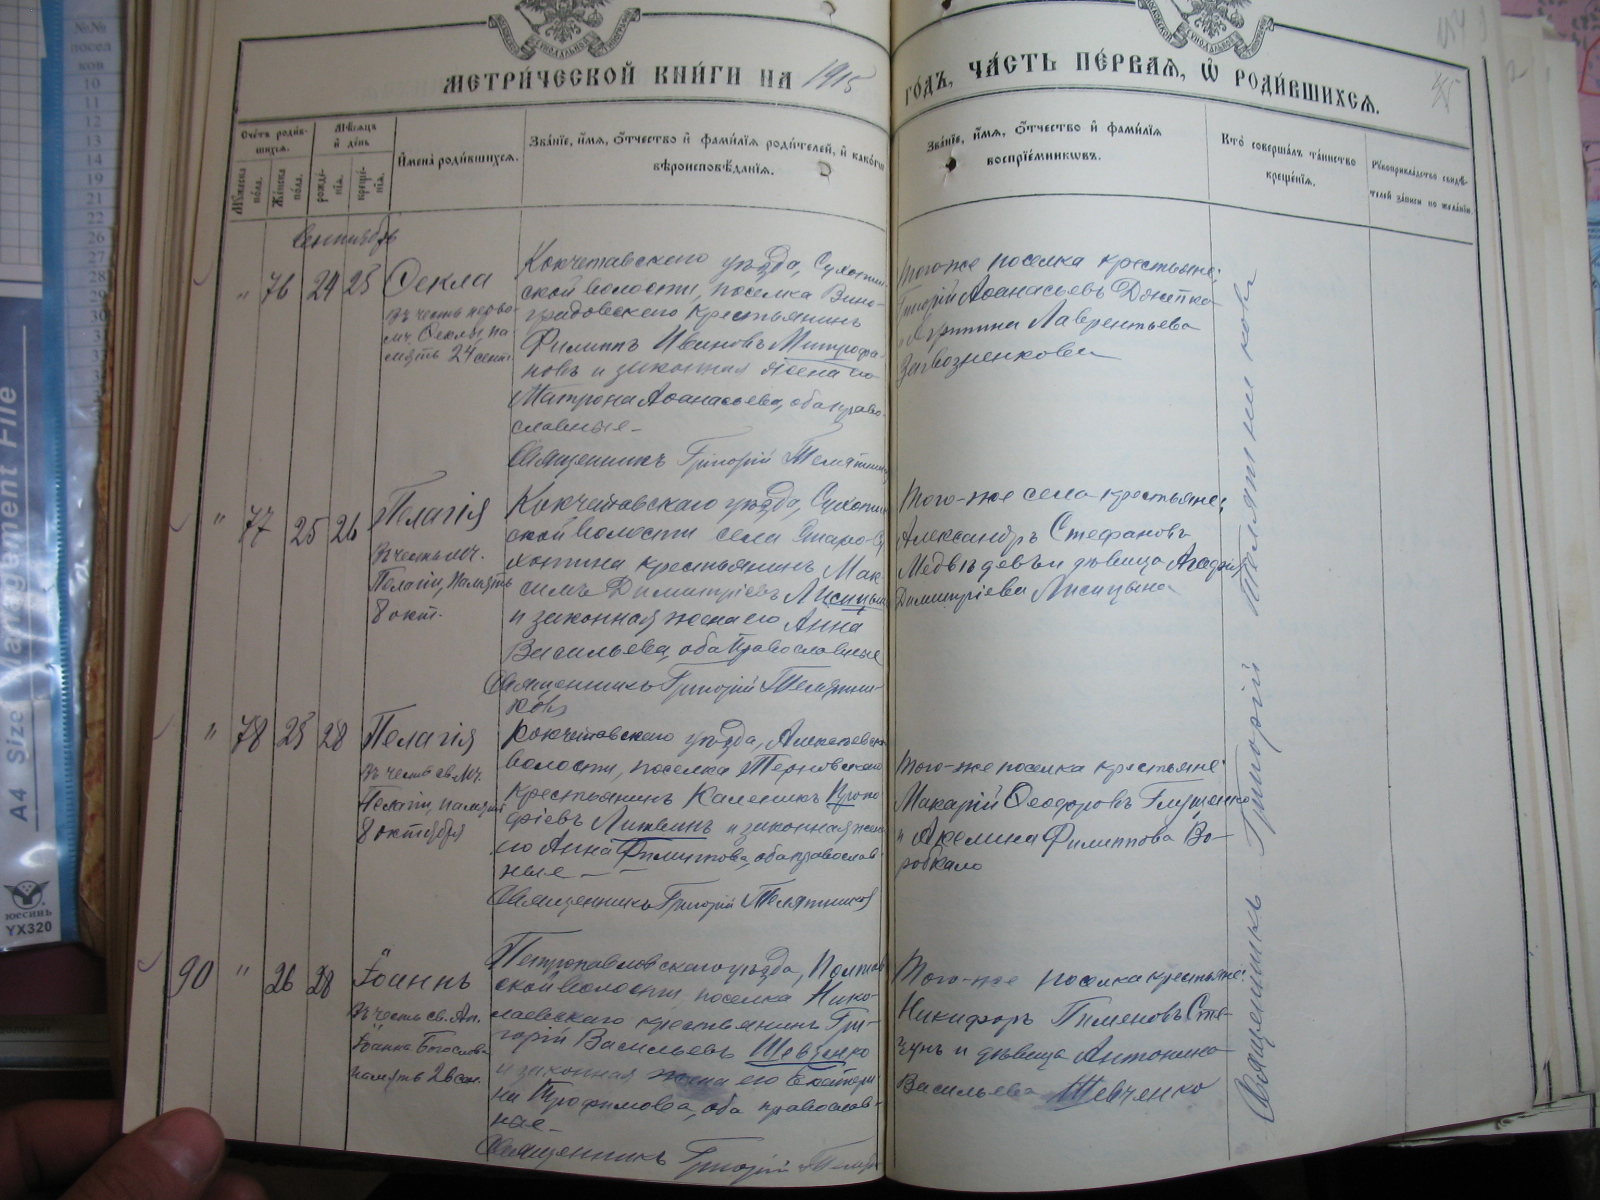 МЕТРИ́ЧЕСКОЙ КНИ́ГИ НА 1915
ГО́ДЪ, ЧА́СТЬ ПЕ́РВАЯ, Ѿ РОДИ́ВШИХСЯ.
Сче́тъ роди́в-
шихся.
Му́жеска по́ла.
Же́нска по́ла.
Мѣ́сяцъ и҆ де́нь
рожде́-
нїя.
креще́-
нїя.
И҆мена̀ роди́вшихся.
Зва́нїе, и҆́мя, ѻ҆́тчество и҆ фами́лїя роди́телей, и҆ како́гѡ
вѣроисповѣ́данїя.
Зва́нїе, и҆́мя, ѻ҆́тчество и҆ фами́лїя
воспрїе́мникѡвъ.
Кто̀ соверша́лъ та́инство
креще́нїя.
Рꙋкоприкла́дство свидѣ́-
телей за́писи по жела́нїю.
Сентябрь
" 76 24 25
Ѳекла
въ честь перво-
мч. Ѳеклы, па-
мять 24 сент.
Кокчетавскаго уѣзда, Сухотин-
ской волости, поселка Вино-
градовскаго крестьянинъ
Филиппъ Ивановъ Митрофа-
новъ и законная жена его
Матрона Аѳанасьева, оба право-
славные
Священникъ Григорій Телятник
Того-же поселка крестьяне:
Григорій Аѳанасьевъ
Лаврентьева
" 77 25 26
Пелагія
въ честь мч.
Пелагіи, память
8 окт.
Кокчетавскаго уѣзда, Сухотин-
ской волости села Старо-Су
хотина крестьянинъ Мак
симъ Димитріевъ Лисицын
и законная жена его Анна
Васильева, оба православные
Священникъ Григорій Телятни-
ковъ
Того-же села крестьяне:
Александръ Стефановъ
Медвѣдевъ и дѣвица
Димитріева Лисицына
" 78 25 28
Пелагія
въ честь св. мч.
Пелагіи, память
8 октября
Кокчетавскаго уѣзда, Алексѣевск
волости, поселка Терновскаго
крестьянинъ Каленикъ Проко
фіевъ Литвинъ и законная жена
его Анна Филиппова, оба православ-
ные
Священникъ Григорій Телятников
Того-же поселка крестьяне:
Макарій Ѳеодоровъ Глущенко
и Акелина Филиппова Во-
робкало
90 " 26 28
Іоаннъ
въ честь св. Ап.
Іоанна Богослова
память 26 сен.
Петропавловскаго уѣзда, Полтав
ской волости, поселка Нико-
лаевскаго крестьянинъ Гри-
горій Васильевъ Шевченко
и законная жена его Екатери
на Трофимова, оба православ-
ные
Священникъ Григорій Телят
Того-же поселка крестьяне:
Никифоръ Пименовъ Сте-
и дѣвица Антонина
Васильева Шевченко
Священникъ Григорій Телятниковъ
№№
посел
ков
10
11
12
13
14
19
21
22
26
27
28
29
30
A4 Size Management File
юесинь
YX320